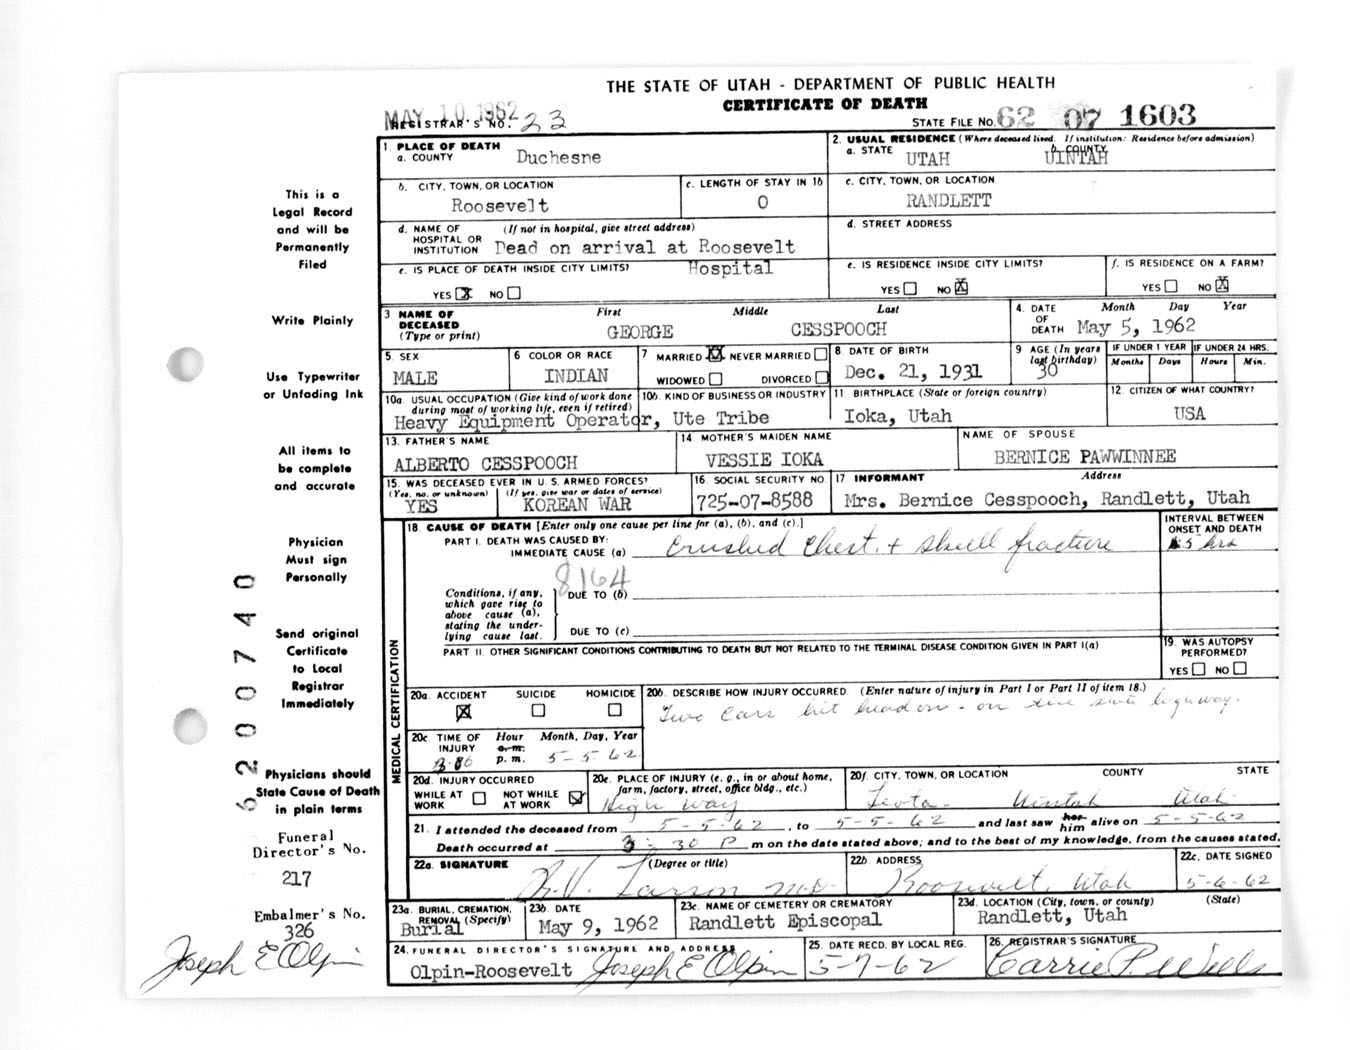 THE STATE OF UTAH - DEPARTMENT OF PUBLIC HEALTH
CERTIFICATE OF DEATH
MAY 10 1962
REGISTRAR'S NO. 23
STATE FILE NO. 62 07 1603
1. PLACE OF DEATH
a. COUNTY Duchesne
2. USUAL RESIDENCE (Where deceased lived. If institution: Residence before admission)
a. STATE UTAH b. COUNTY UINTAH
b. CITY, TOWN, OR LOCATION Roosevelt
c. LENGTH OF STAY IN 1b 0
c. CITY, TOWN, OR LOCATION RANDLETT
d. NAME OF HOSPITAL OR INSTITUTION (If not in hospital, give street address)
Dead on arrival at Roosevelt Hospital
d. STREET ADDRESS
e. IS PLACE OF DEATH INSIDE CITY LIMITS?
YES X NO
e. IS RESIDENCE INSIDE CITY LIMITS?
YES NO X
f. IS RESIDENCE ON A FARM?
YES NO X
3 NAME OF DECEASED (Type or print) First Middle Last
GEORGE CESSPOOCH
4. DATE OF DEATH Month Day Year
May 5, 1962
5. SEX MALE
6 COLOR OR RACE INDIAN
7 MARRIED X NEVER MARRIED
WIDOWED DIVORCED
8. DATE OF BIRTH Dec. 21, 1931
9 AGE (In years last birthday) 30
IF UNDER 1 YEAR Months Days
IF UNDER 24 HRS. Hours Min.
10a. USUAL OCCUPATION (Give kind of work done during most of working life, even if retired)
10b. KIND OF BUSINESS OR INDUSTRY
Heavy Equipment Operator, Ute Tribe
11. BIRTHPLACE (State or foreign country)
Ioka, Utah
12. CITIZEN OF WHAT COUNTRY?
USA
13. FATHER'S NAME
ALBERTO CESSPOOCH
14. MOTHER'S MAIDEN NAME
VESSIE IOKA
NAME OF SPOUSE
BERNICE PAWWINNEE
15. WAS DECEASED EVER IN U. S. ARMED FORCES?
(Yes, no, or unknown) (If yes, give war or dates of service)
YES KOREAN WAR
16. SOCIAL SECURITY NO.
725-07-8588
17. INFORMANT Address
Mrs. Bernice Cesspooch, Randlett, Utah
18. CAUSE OF DEATH [Enter only one cause per line for (a), (b), and (c).]
PART I. DEATH WAS CAUSED BY:
IMMEDIATE CAUSE (a) Crushed Chest + skull fracture
INTERVAL BETWEEN ONSET AND DEATH
.5 hrs
8164
Conditions, if any, which gave rise to above cause (a), stating the underlying cause last.
DUE TO (b)
DUE TO (c)
PART II. OTHER SIGNIFICANT CONDITIONS CONTRIBUTING TO DEATH BUT NOT RELATED TO THE TERMINAL DISEASE CONDITION GIVEN IN PART I(a)
19. WAS AUTOPSY PERFORMED?
YES NO
MEDICAL CERTIFICATION
20a. ACCIDENT SUICIDE HOMICIDE
X
20b. DESCRIBE HOW INJURY OCCURRED. (Enter nature of injury in Part I or Part II of item 18.)
Two Cars hit head on - on state highway.
20c. TIME OF INJURY Hour Month, Day, Year
a. m.
p. m. 5-5-62
20d. INJURY OCCURRED
WHILE AT WORK NOT WHILE AT WORK X
20e. PLACE OF INJURY (e. g., in or about home, farm, factory, street, office bldg., etc.)
High way
20f. CITY, TOWN, OR LOCATION COUNTY STATE
Leota - Uintah Utah
21. I attended the deceased from 5-5-62, to 5-5-62 and last saw her him alive on 5-5-62
Death occurred at 3:30 P m on the date stated above; and to the best of my knowledge, from the causes stated.
22a. SIGNATURE (Degree or title)
Larson M.D.
22b. ADDRESS
Roosevelt, Utah
22c. DATE SIGNED
5-6-62
23a. BURIAL, CREMATION, REMOVAL (Specify)
Burial
23b. DATE
May 9, 1962
23c. NAME OF CEMETERY OR CREMATORY
Randlett Episcopal
23d. LOCATION (City, town, or county) (State)
Randlett, Utah
24. FUNERAL DIRECTOR'S SIGNATURE AND ADDRESS
Olpin-Roosevelt Joseph E Olpin
25. DATE RECD. BY LOCAL REG.
5-7-62
26. REGISTRAR'S SIGNATURE
Carrie P. Wells
This is a
Legal Record
and will be
Permanently
Filed
Write Plainly
Use Typewriter
or Unfading Ink
All items to
be complete
and accurate
Physician
Must sign
Personally
Send original
Certificate
to Local
Registrar
Immediately
Physicians should
State Cause of Death
in plain terms
6200740
Funeral
Director's No.
217
Embalmer's No.
326
Joseph E Olpin